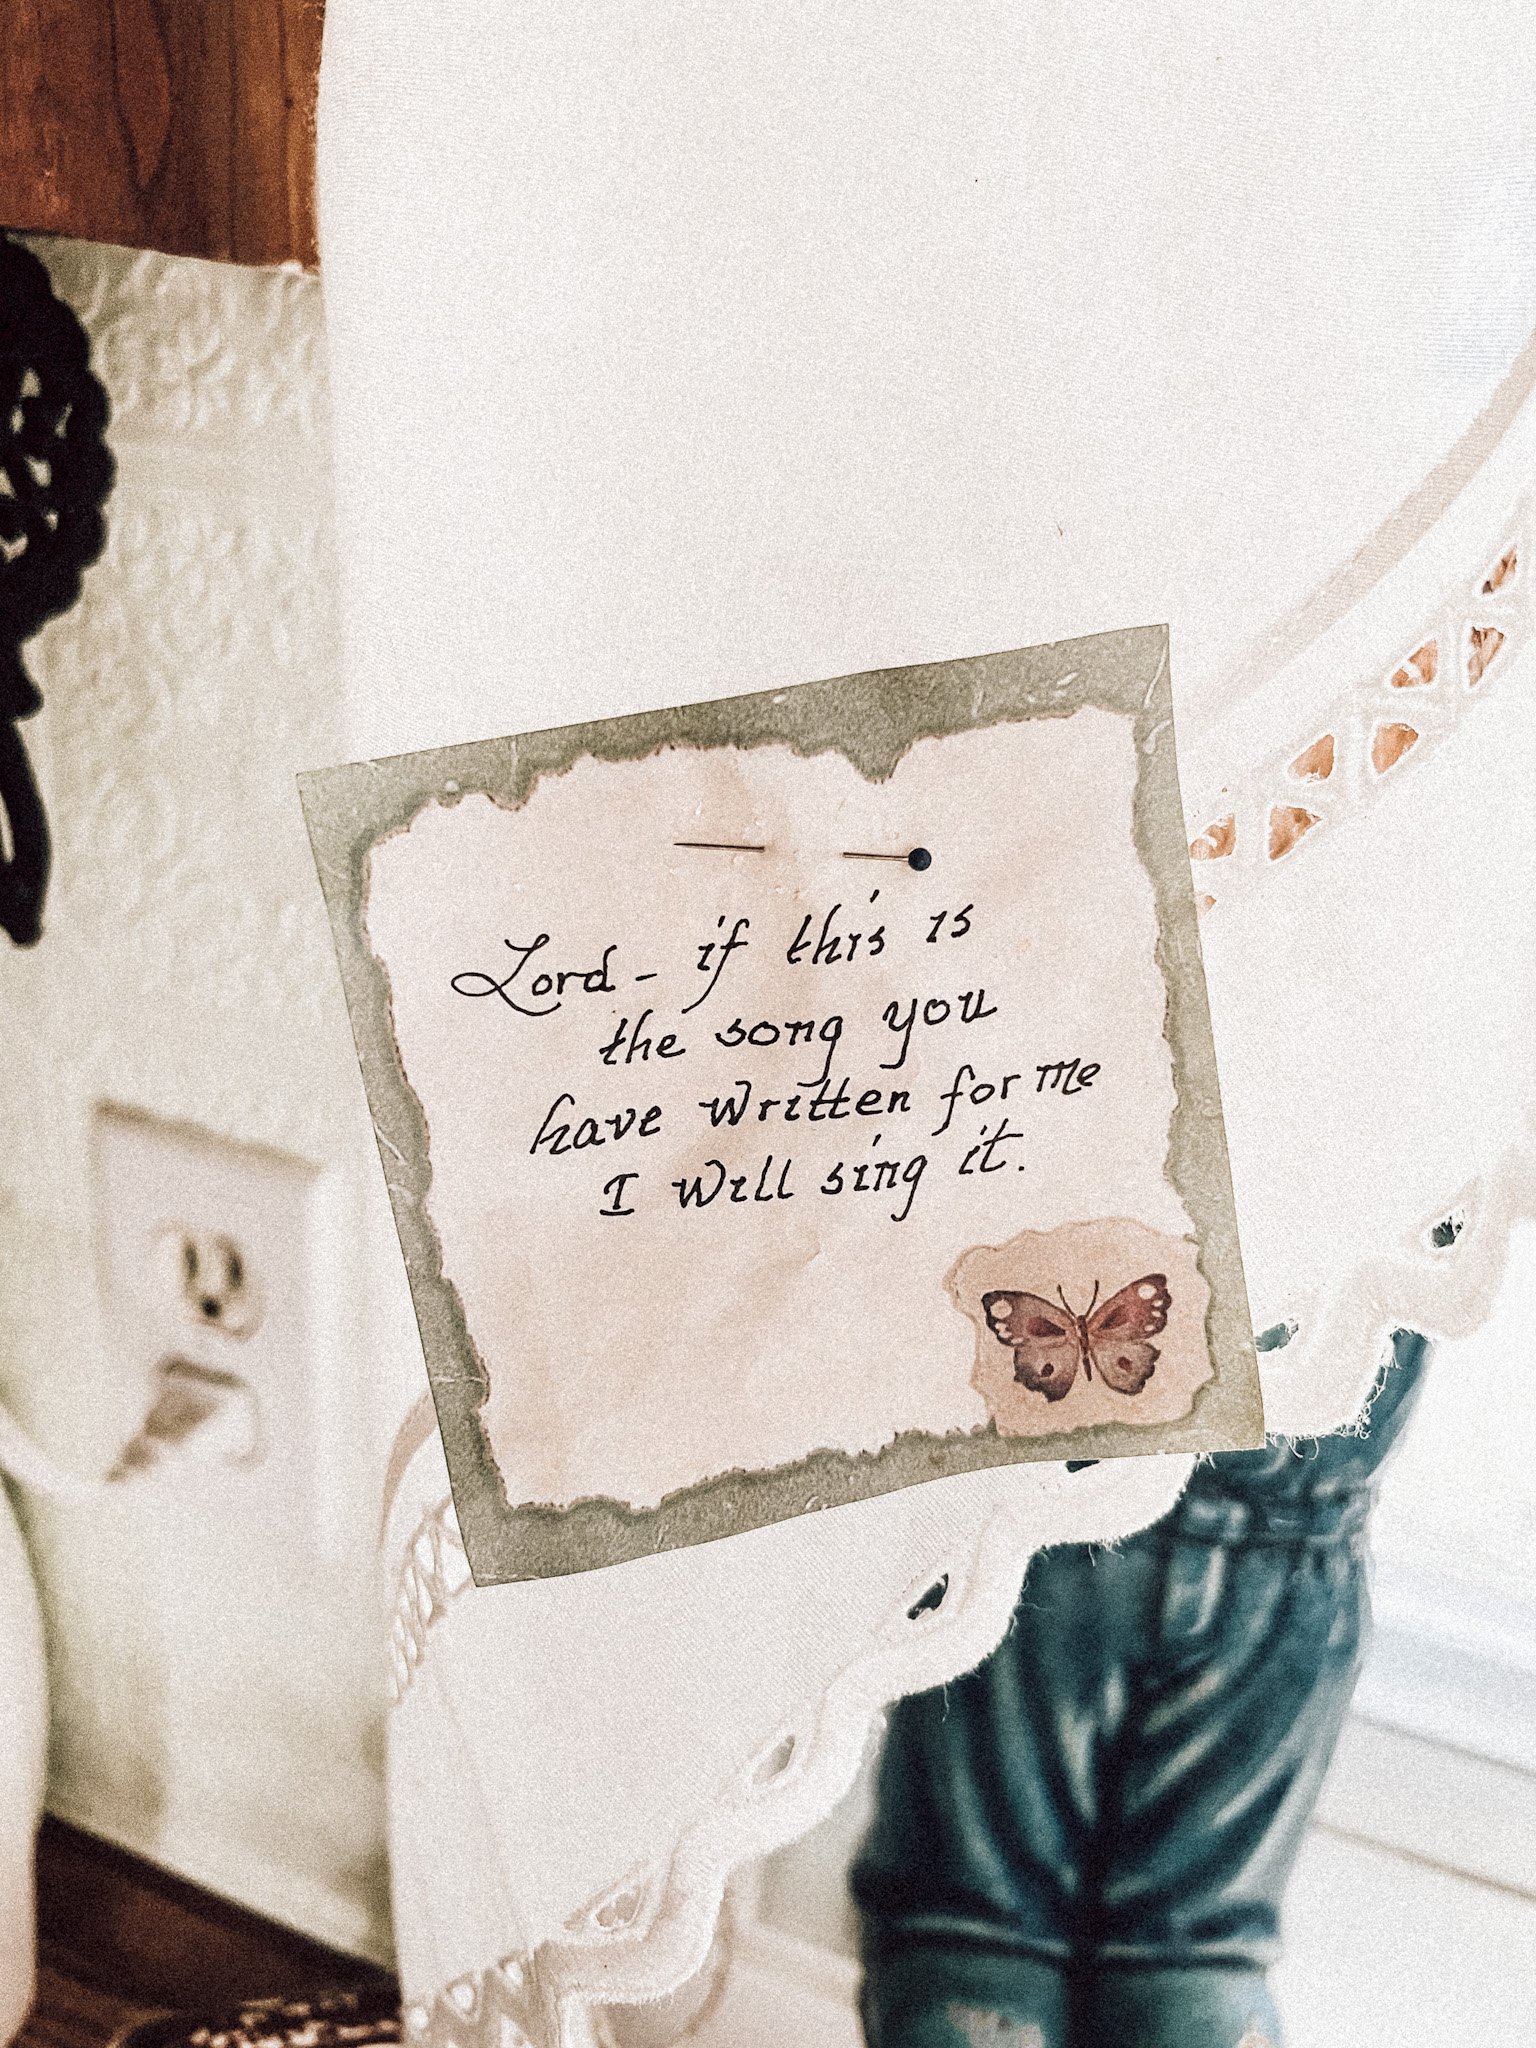 Lord - if this is
the song you
have written for me
I will sing it.